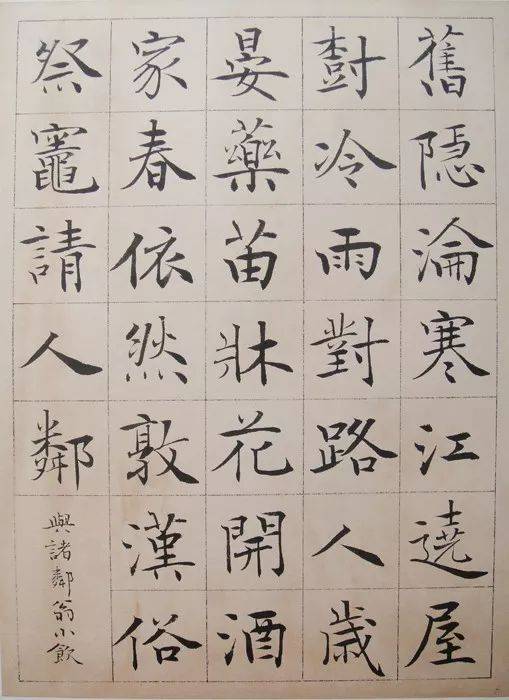 舊隱淪寒江遶屋
樹冷雨對路人歲
晏藥苗牀花開酒
家春依然敦漢俗
祭竈請人鄰
與諸鄰翁小飲